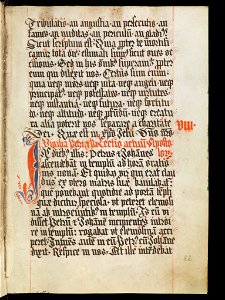 tribulatio: an angustia: an persecutio: an
fames: an nuditas: an periculum: an gladius?
Sicut scriptum est: Quia propter te mortifi
camur tota die: estimati sumus sicut oves oc
cisionis. Sed in his omnibus superamus propter
eum qui dilexit nos. Certus sum enim
quia neque mors neque vita neque angeli neque
principatus neque potestates neque virtutes
neque instantia neque futura neque fortitu
do neque altitudo neque profundum neque crea
tura alia poterit nos separare a charitate
Dei. Que est in Christo Jesu Domino nostro
VIII
Vigilia Petri Lectio actuum Aposto
In diebus illis: Petrus et Johannes lorum
ascendebant in templum ad horam oratio
nis nonam. Et quidam vir qui erat clau
dus ex utero matris sue baiulabat:
quem ponebant quotidie ad portam templi
que dicitur speciosa: ut peteret elemosinam
ab introeuntibus in templum. Is cum vi
disset Petrum et Johannem incipientes
introire in templum: rogabat ut elemosinam acci
peret. Intuens autem in eum Petrus cum Johanne
dixit: Respice in nos. Et ille intendebat